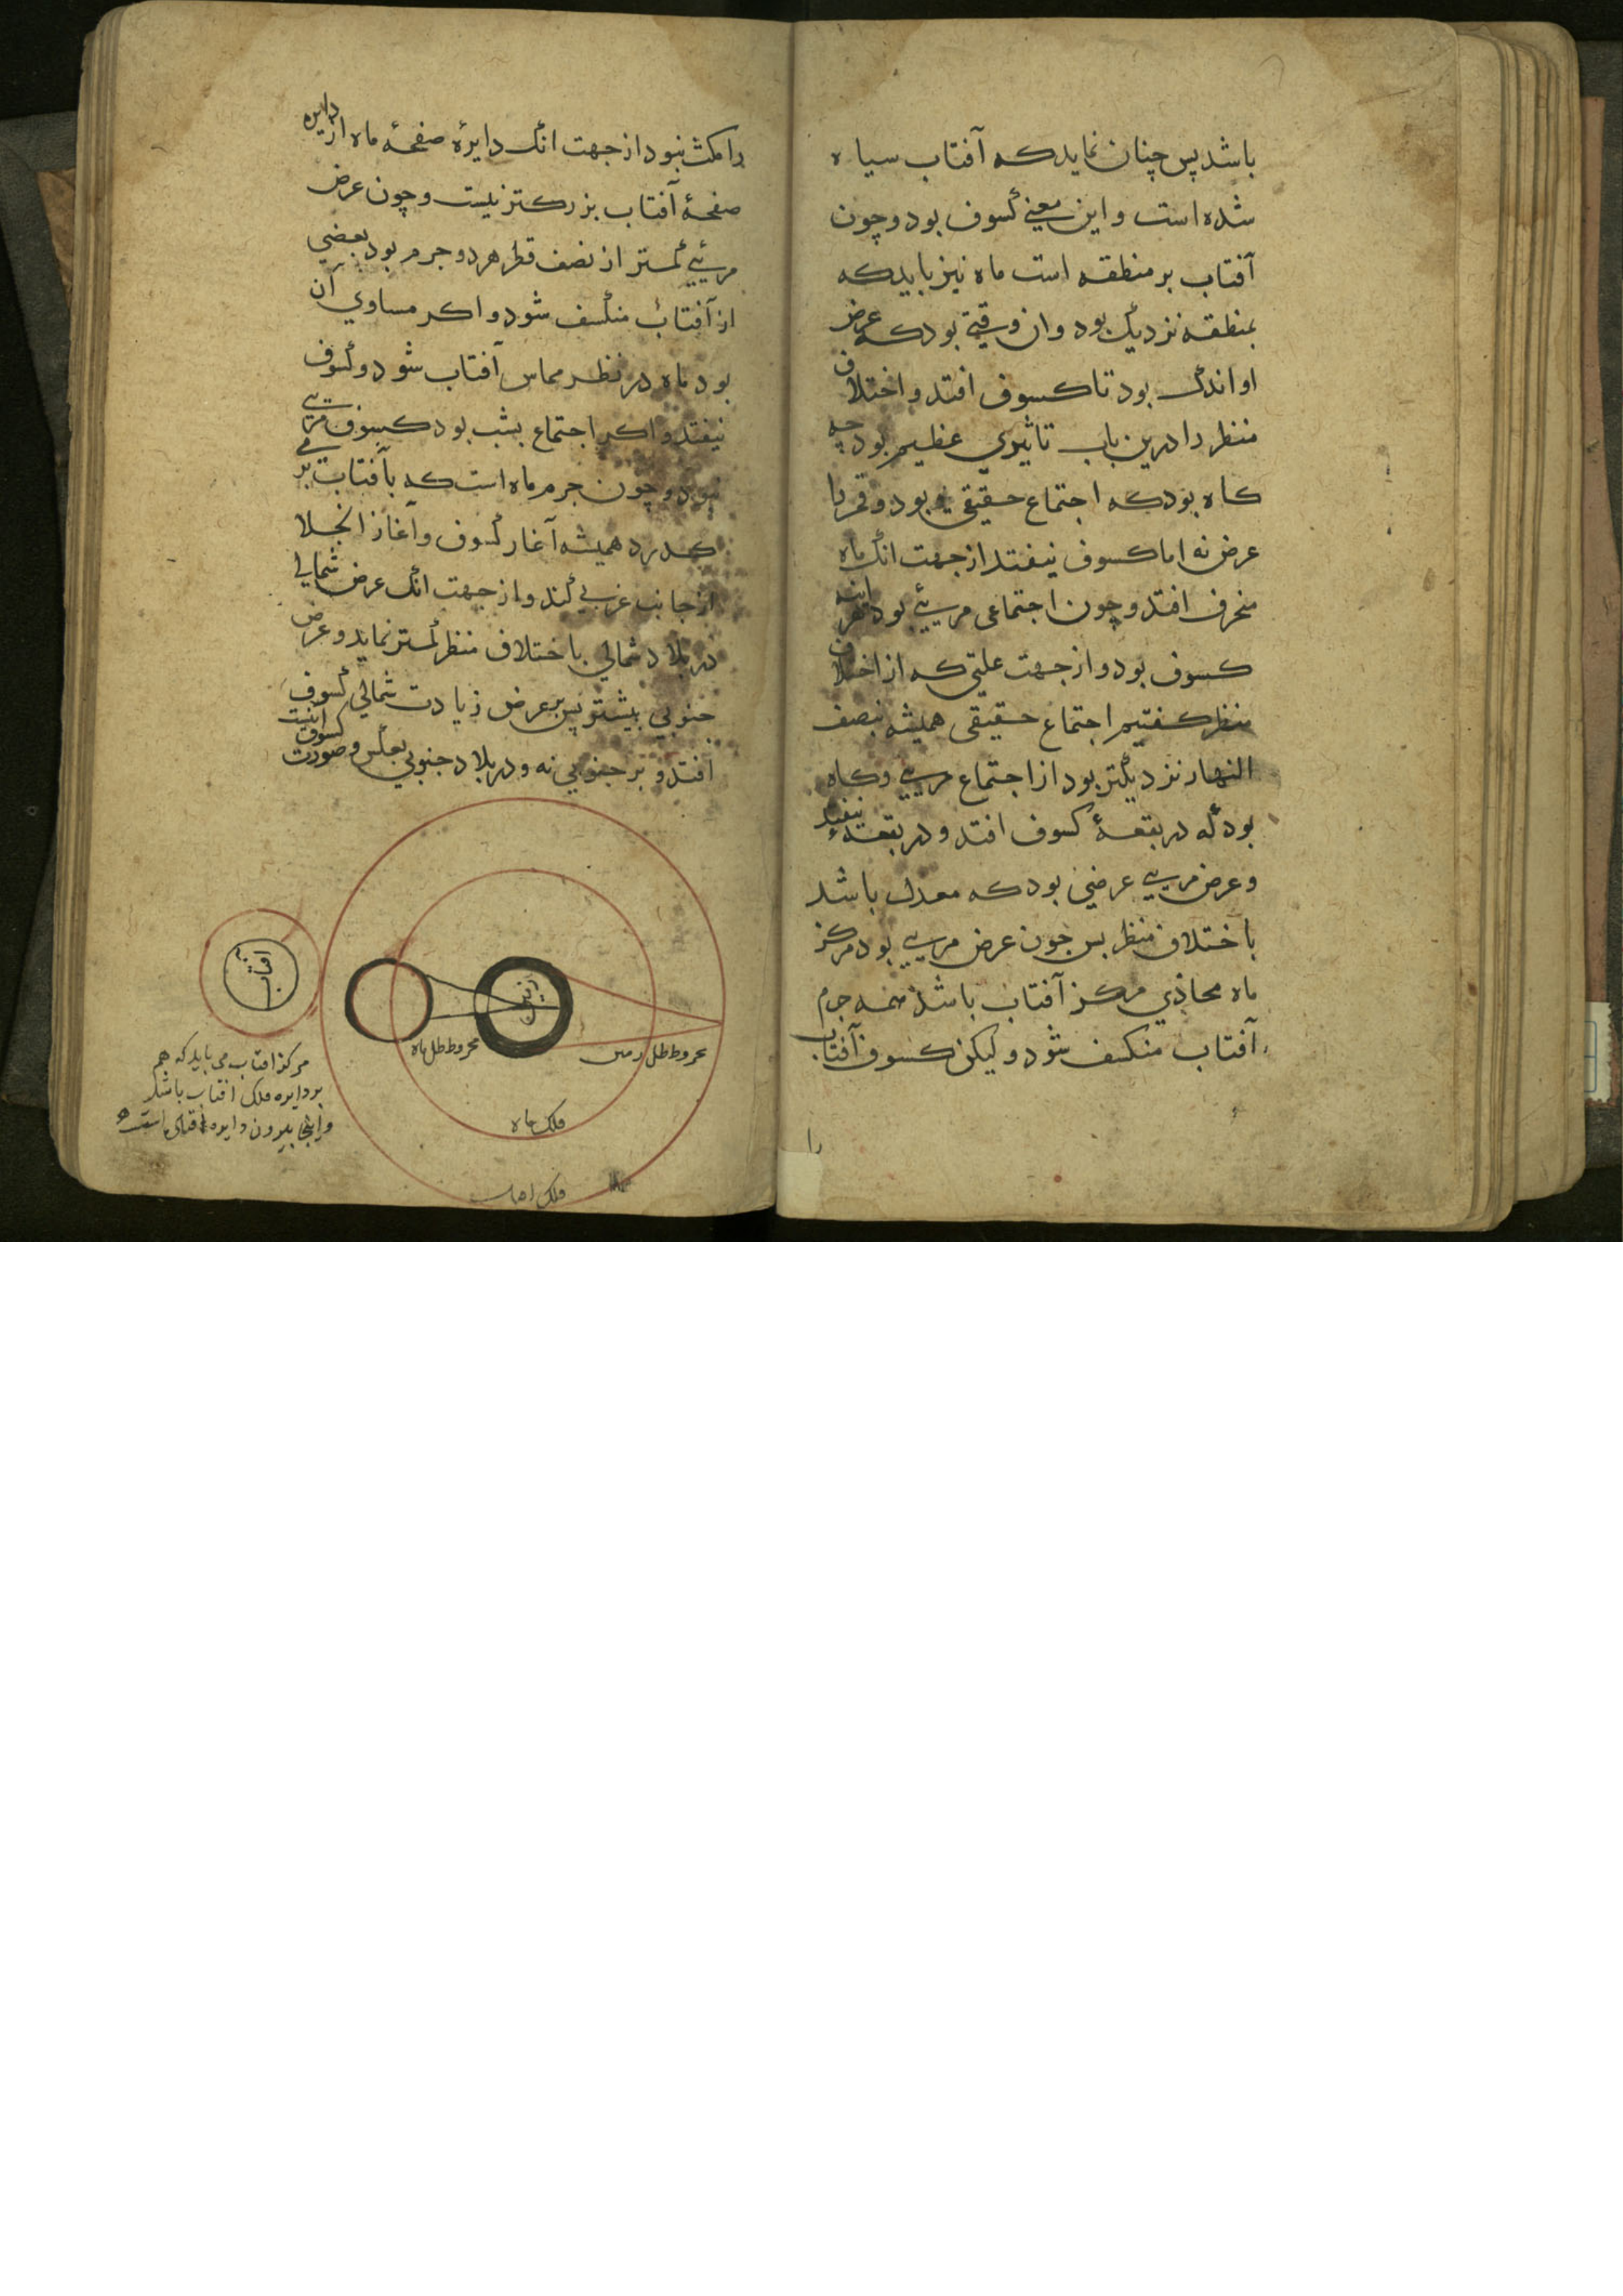 باشد پس چنان نماید که آفتاب سیاه
شده است و این معنی کسوف بود و چون
آفتاب بر منطقه است ماه نیز باید که
بمنطقه نزدیک بود و ان وقتی بود که عرض
او اندک بود تا کسوف افتد و اختلاف
منظر را درین باب تاثیری عظیم بود چه
کاه بود که اجتماع حقیقی بود و قمر را
عرض نه اما کسوف نیفتد از جهت انک ماه
منحرف افتد و چون اجتماعی مریی بود هراینه
کسوف بود و از جهت علتی که از اختلاف
منظر کفتیم اجتماع حقیقی همیشه بنصف
النهار نزدیکتر بود از اجتماع مریی و کاه
بود که در بقعهٔ کسوف افتد و در بقعهٔ نیفتد
و عرض مریی عرضی بود که معدل باشد
باختلاف منظر پس چون عرض مریی بود مرکز
ماه محاذی مرکز آفتاب باشد همه جرم
آفتاب منکسف شود و لیکن کسوف آفتاب
را
را مکث نبود از جهت انک دایرهٔ صفحهٔ ماه از دایره
صفحهٔ آفتاب بزرکتر نیست و چون عرض
مریی کمتر از نصف قطر هر دو جرم بود بعضی
از آفتاب منکسف شود و اکر مساوی آن
بود ماه در نظر مماس آفتاب شود و کسوف
نیفتد و اکر اجتماع بشب بود کسوف مریی
نبود و چون جرم ماه است که بآفتاب بر می
کذرد همیشه آغاز کسوف و آغاز انجلا
از جانب غربی کند و از جهت انک عرض شمالی
در بلاد شمالی باختلاف منظر کمتر نماید و عرض
جنوبی بیشتر پس بر عرض زیادت شمالی کسوف
افتد و بر جنوبی نه و در بلاد جنوبی بعکس و صورت کسوف اینست
آفتاب
زمین
مخروط ظل ماه
مخروط ظل زمین
فلک ماه
فلک افتاب
مرکز افتاب می باید که هم
بر دایره فلک افتاب باشد
و اینجا بیرون دایره افتاب است